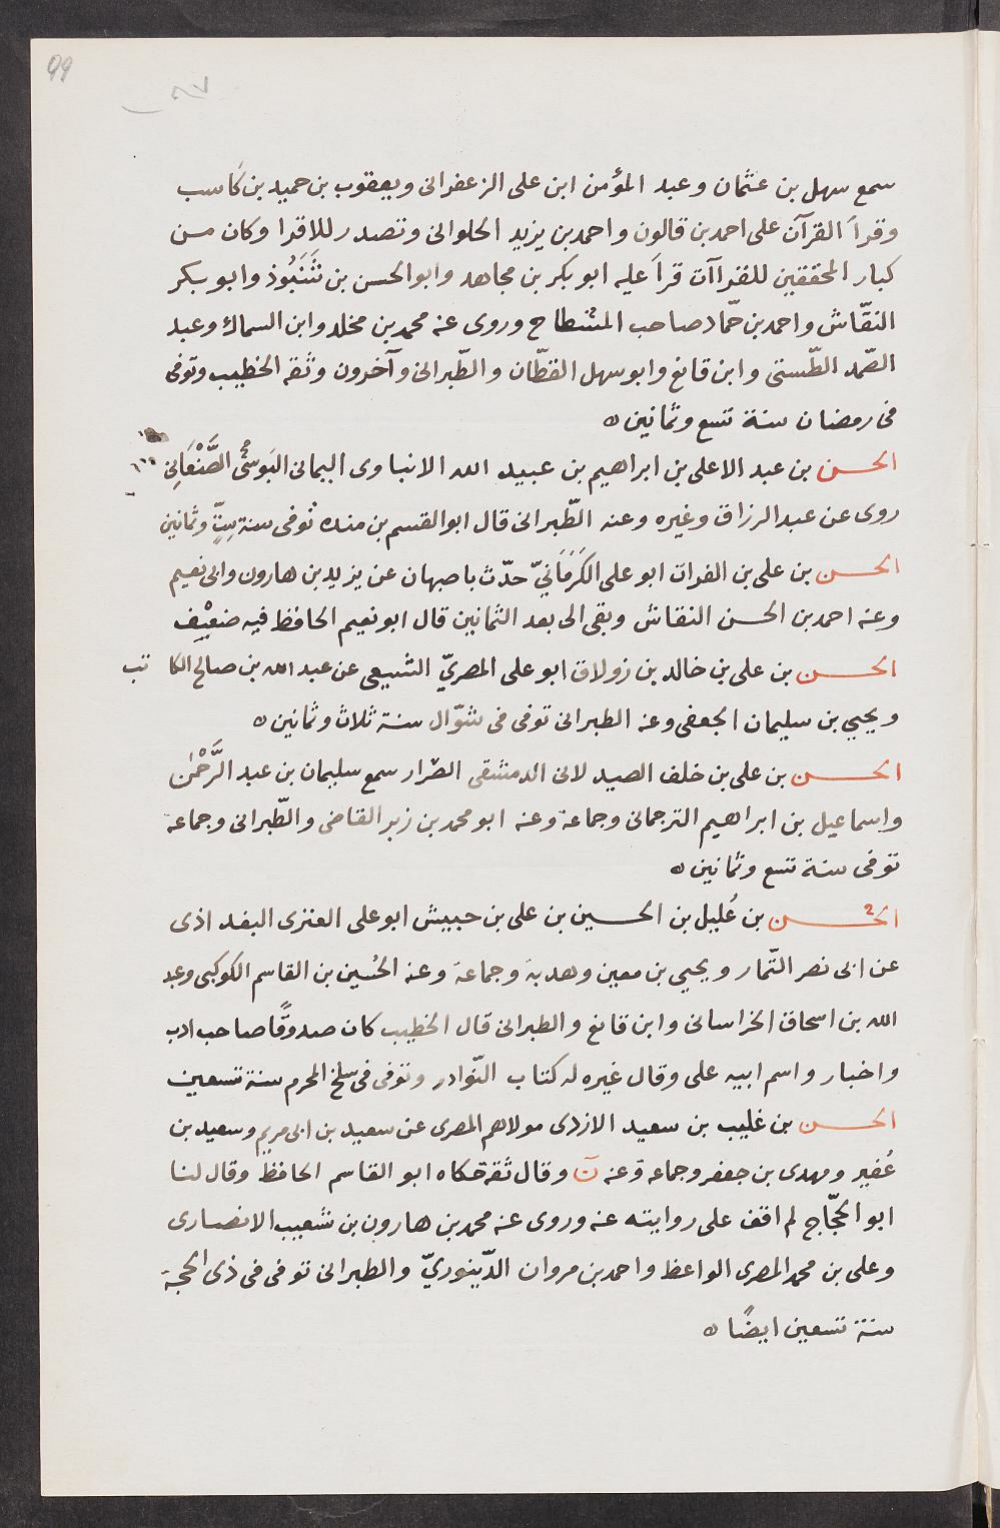 99
سمع سهل بن عثمان وعبد المؤمن ابن على الزعفرانى ويعقوب بن حميد بن كاسب
وقرأ القرآن على احمد بن قالون واحمد بن يزيد الحلوانى وتصدر للاقرا وكان من
كبار المحققين للقراآت قرأ عليه ابو بكر بن مجاهد وابو الحسن بن شَنَبُوذ وابو بكر
النقّاش واحمد بن حمّاد صاحب المشطاح وروى عنه محمد بن مخلد وابن السماك وعبد
الصّمد الطّستى وابن قانع وابو سهل القطّان والطّبرانى وآخرون وثقه الخطيب وتوفى
فى رمضان سنة تسع وثمانين ه
الحسن بن عبد الاعلى بن ابراهيم بن عبيد الله الانباوى اليمانى البَوسىّ الصَّنْعَانِى
روى عن عبد الرزاق وغيره وعنه الطّبرانى قال ابو القسم بن منده توفى سنة سِتٍّ وثمانين
الحسن بن على بن الفرات ابو على الكَرَمَانىّ حدّث باصبهان عن يزيد بن هارون وابى نعيم
وعنه احمد بن الحسن النقاش وبقى الى بعد الثمانين قال ابو نعيم الحافظ فيه ضعيف
الحسن بن على بن خالد بن زولاق ابو على المصرىّ الشيعى عن عبد الله بن صالح الكا تب
ويحيى بن سليمان الجعفى وعنه الطبرانى توفى فى شوّال سنة ثلاث وثمانين ه
الحسن بن على بن خلف الصيد لانى الدمشقى الصّرار سمع سليمان بن عبد الرَّحْمٰن
واسماعيل بن ابراهيم الترجمانى وجماعة وعنه ابو محمد بن زبر القاضى والطّبرانى وجماعة
توفى سنة تسع وثمانين ه
الحسن بن عُليل بن الحسين بن على بن حبيش ابو على العنزى البغد اذى
عن ابى نصر التّمار ويحيى بن معين وهدبة وجماعة وعنه الحُسين بن القاسم الكوكبى وعبد
الله بن اسحاق الخراسانى وابن قانع والطبرانى قال الخطيب كان صدوقًا صاحب ادب
واخبار واسم ابيه على وقال غيره له كتاب النّوادر وتوفى فى سلخ المحرم سنة تسعين
الحسن بن غليب بن سعيد الازدى مولاهم المصرى عن سعيد بن ابى مريم وسعيد بن
عُفير ومهدى بن جعفر وجماعة وعنه نَ وقال ثقة حكاه ابو القاسم الحافظ وقال لنا
ابو الحجّاج لم اقف على روايته عنه وروى عنه محمد بن هارون بن شعيب الانصارى
وعلى بن محمد المصرى الواعظ واحمد بن مروان الدّينورىّ والطبرانى توفى فى ذى الحجة
سنة تسعين ايضًا ه